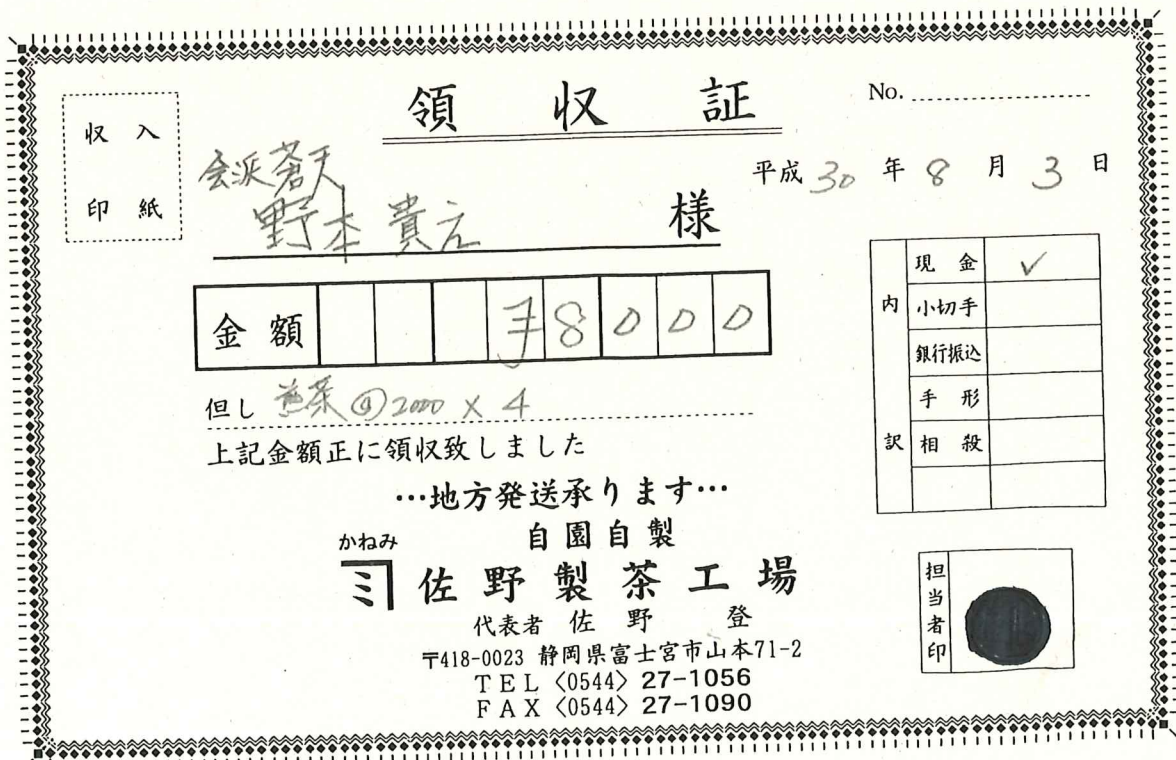 領収証
No.
収入
印紙
平成30年8月3日
会派蒼天
野本貴之 様
金額 ¥8000
但し 煎茶 @2000 × 4
上記金額正に領収致しました
内訳
現金 ✓
小切手
銀行振込
手形
相殺
…地方発送承ります…
自園自製
かねみ
ミ 佐野製茶工場
代表者 佐野 登
〒418-0023 静岡県富士宮市山本71-2
TEL〈0544〉27-1056
FAX〈0544〉27-1090
担当者印